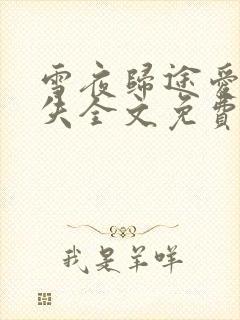 雪夜歸途愛
失全文免費
我是羊咩